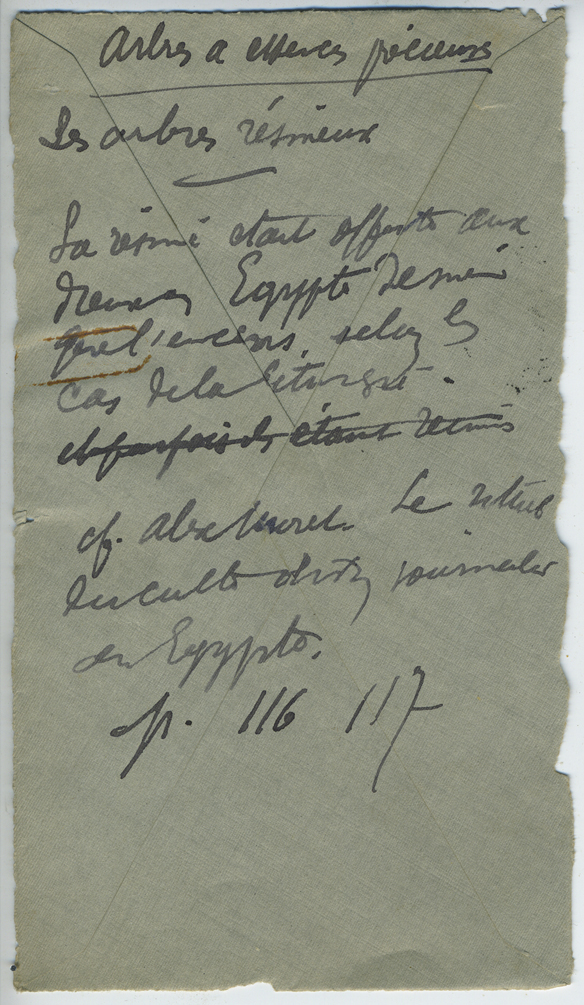 Arbres a essences précieuses
Les arbres résineux
La résine était offerte aux
dieux en Egypte de même
que l'encens, selon les
cas de la liturgie.
et parfois ils étaient réunis
cf. Alex Moret. Le rituel
du culte divin journalier
en Egypte.
p. 116 117